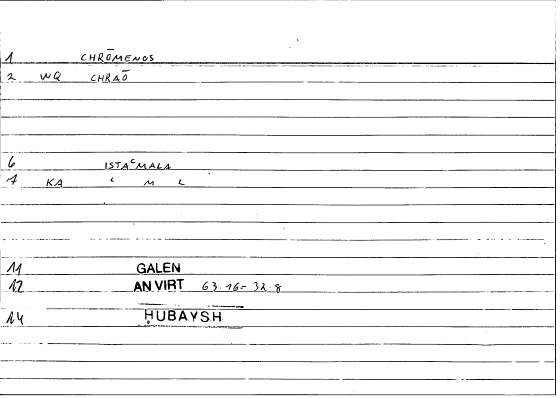 1 CHRŌMENOS
2 WQ CHRAŌ
6 ISTAʿMALA
7 KA ʿ M L
11 GALEN
12 AN VIRT 63.16 = 32.8
14 ḤUBAYSH